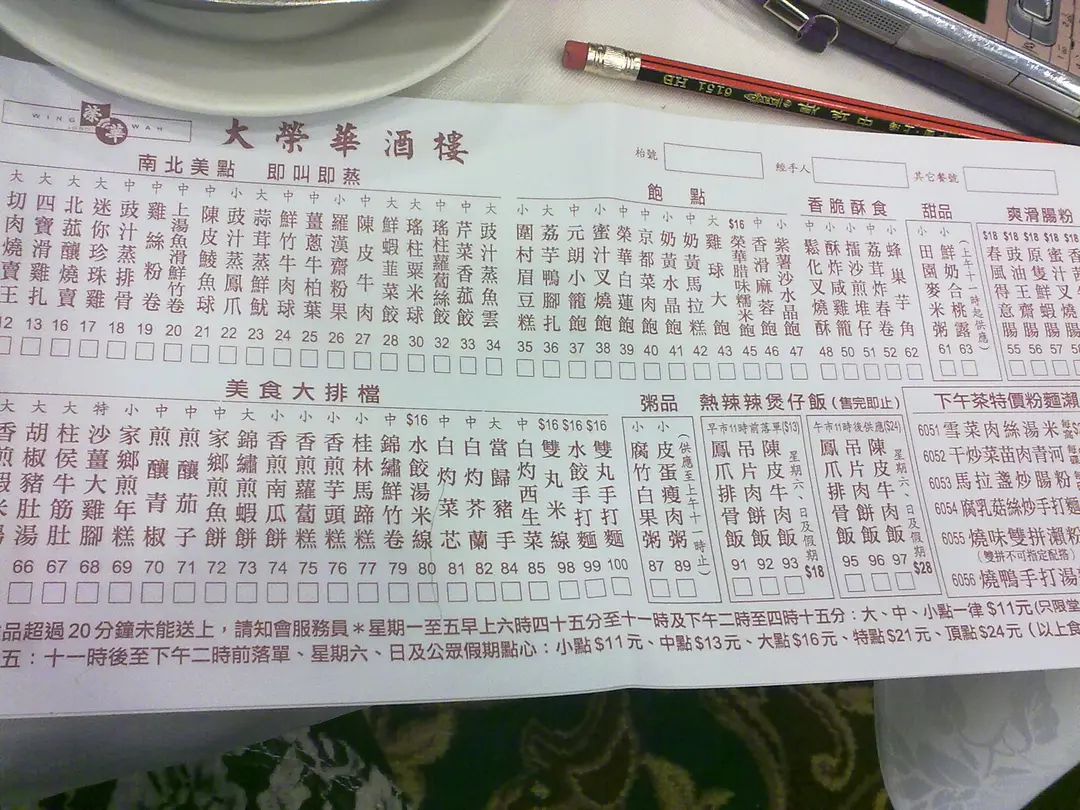 WING WAH
榮華
大榮華酒樓
枱號
經手人
其它餐號
南北美點 即叫即蒸
大 切肉燒賣王 12
大 四寶滑雞扎 13
大 北菰釀燒賣 16
大 迷你珍珠雞 17
中 豉汁蒸排骨 18
中 雞絲粉卷 19
中 上湯魚滑鮮竹卷 20
中 陳皮鯪魚球 21
小 豉汁蒸鳳爪 22
大 蒜茸蒸鮮魷 23
中 鮮竹牛肉球 24
中 薑蔥牛柏葉 25
小 羅漢齋粉果 26
中 陳皮牛肉 27
大 鮮蝦韮菜餃 28
大 瑤柱粟米球 30
中 瑤柱蘿蔔絲餃 32
中 芹菜香菰餃 33
大 豉汁蒸魚雲 34
飽點
小 圍村眉豆糕 35
大 荔芋鴨腳扎 36
中 元朗小籠飽 37
小 蜜汁叉燒飽 38
中 榮華白蓮飽 39
中 京都菜肉飽 40
小 奶黃水晶飽 41
中 奶黃馬拉糕 42
大 雞球大飽 43
$16 榮華臘味糯米飽 45
中 香滑麻蓉飽 46
小 紫薯沙水晶飽 47
香脆酥食
中 鬆化叉燒酥 48
小 酥炸沙雞籠 50
小 擂沙煎堆仔 51
中 荔茸炸春卷 52
小 蜂巢芋角 62
甜品
小 田園麥米粥 61
小 鮮奶合桃露 63
(上午十一時起供應)
爽滑腸粉
$18 春風得意腸 55
$18 豉油王齋腸 56
$18 原隻鮮蝦腸 57
$18 蜜汁叉燒腸
美食大排檔
大 66
大 胡椒豬肚湯 67
大 柱侯牛筋肚 68
特 沙薑大雞腳 69
小 家鄉煎年糕 70
中 煎釀青椒 70
中 煎釀茄子 71
中 家鄉煎魚餅 72
大 錦繡煎蝦餅 73
小 香煎南瓜餅 74
小 香煎蘿蔔糕 75
小 香煎芋頭糕 76
小 桂林馬蹄糕 78
中 錦繡鮮竹卷 79
$16 水餃湯米線 80
中 白灼菜芯 81
中 白灼芥蘭 82
大 當歸豬手 84
中 白灼西生菜 85
$16 雙丸米線 98
$16 水餃手打麵 99
$16 雙丸手打麵 100
粥品
小 腐竹白果粥 87
小 皮蛋瘦肉粥 89
(供應至上午十一時止)
熱辣辣煲仔飯 (售完即止)
早市11時前落單($13)
鳳爪排骨飯 91
吊片肉餅飯 92
陳皮牛肉飯 93
星期六、日及假期$18
午市11時後供應($24)
鳳爪排骨飯 95
吊片肉餅飯 96
陳皮牛肉飯 97
星期六、日及假期$28
下午茶特價粉麵瀨
6051 雪菜肉絲湯米
6052 干炒菜苗肉青河
6053 馬拉盞炒腸粉
6054 腐乳菇絲炒手打麵
6055 燒味雙拼瀨粉
(雙拼不可指定配搭)
6056 燒鴨手打湯
品超過20分鐘未能送上，請知會服務員＊星期一至五早上六時四十五分至十一時及下午二時至四時十五分：大、中、小點一律$11元(只限堂
五：十一時後至下午二時前落單、星期六、日及公眾假期點心：小點$11元、中點$13元、大點$16元、特點$21元、頂點$24元（以上食
6151 HB